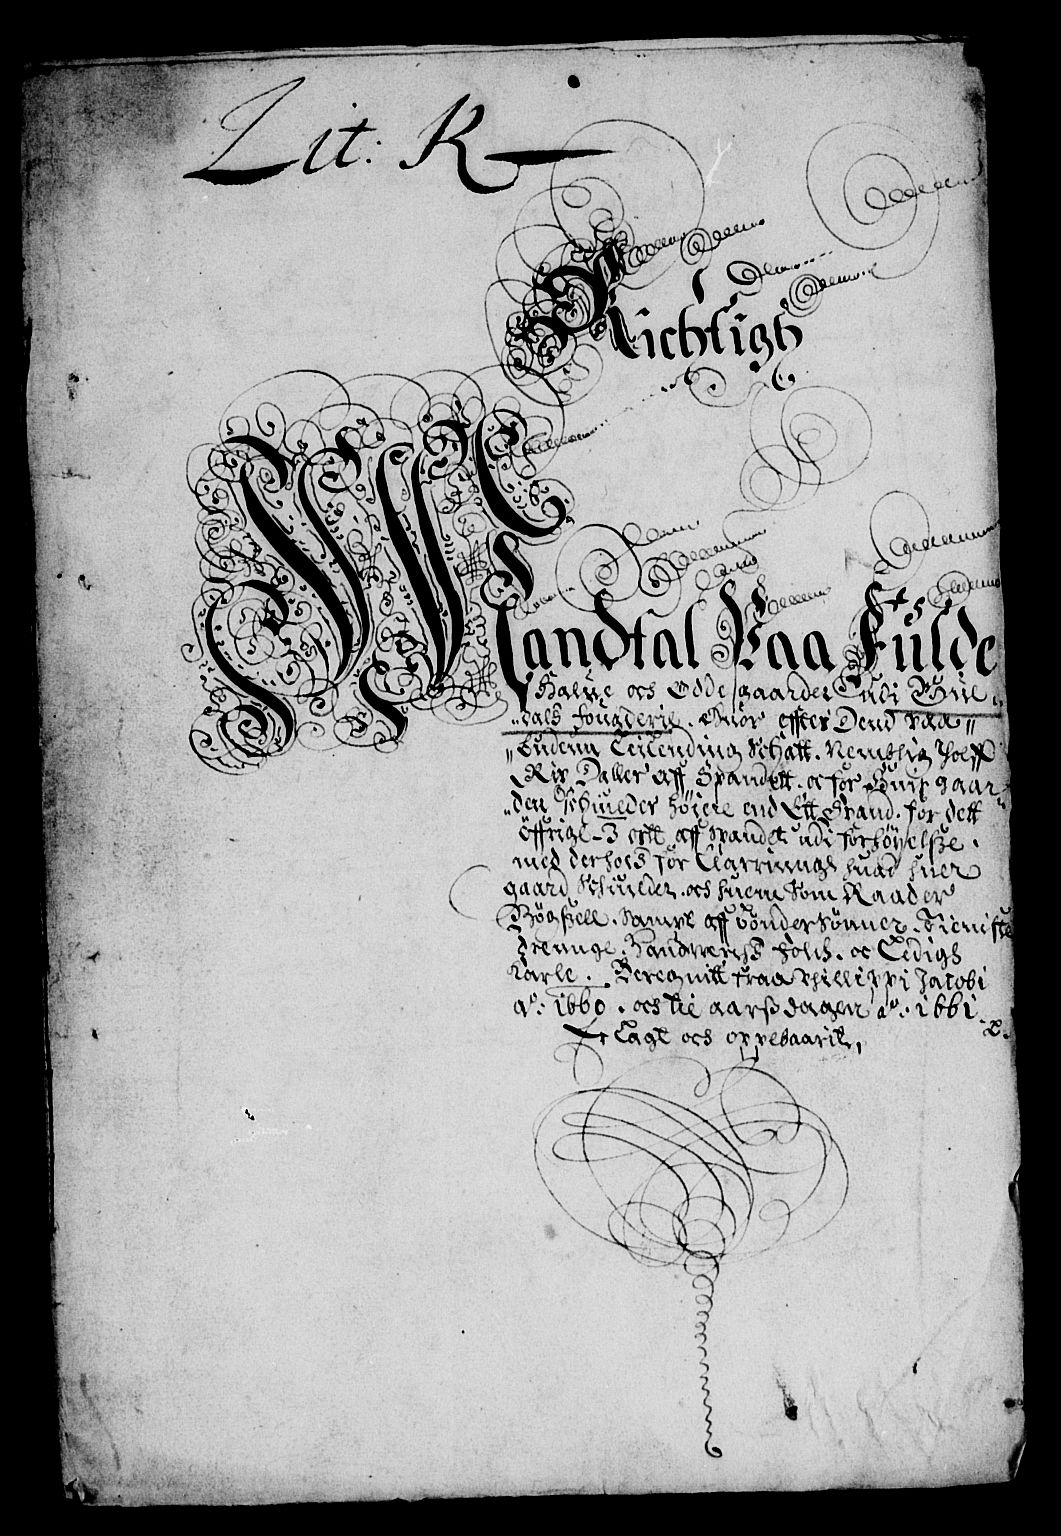 Lit: R
Richtigh
Mandtal Paa Fulde
Halfue och Ødde gaarder udi Guul„
„dals fougderie. Huor effter Dend Paa„
„budenn Leilending Schatt. Nemblig Tolff
Rix Daller aff Spandett. oc for Huis gaar„
„den Schuilder høiere end Ett Spand. for dett
öffrige 3 ortt aff spandet udi forhöyelse.
med derhos for Clarrinngh huad huer
gaard Schuilder. och huem som Raader
Bögsell. Sampt aff bönder Sönner. Tieniste
Drennge. Handtverchs folch. oc Ledigh
Karle. Beregnitt fraa Phillippi Jacobi
a°: 1660. och til aarss dagen a°: 1661.
Er Lagt och oppebaarit,